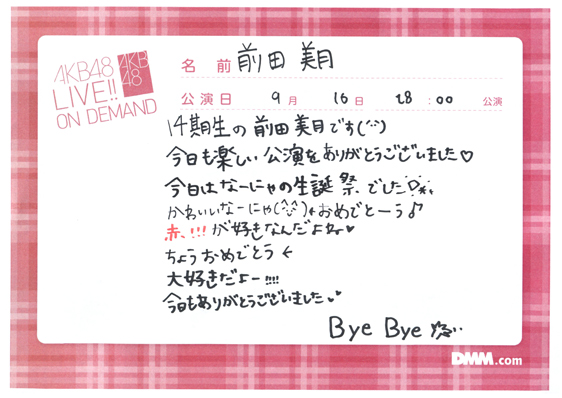 AKB48
LIVE!!
ON DEMAND
AKB
48
名前 前田 美月
公演日 9月 16日 18:00 公演
14期生の前田美月です(^^)
今日も楽しい公演をありがとうございました♡
今日はなーにゃの生誕祭でした
かわいいなーにゃ(^^)おめでとーう♪
赤、!!!が好きなんだよね♥
ちょうおめでとう←
大好きだよー!!!!
今日もありがとうございました
Bye Bye
DMM.com